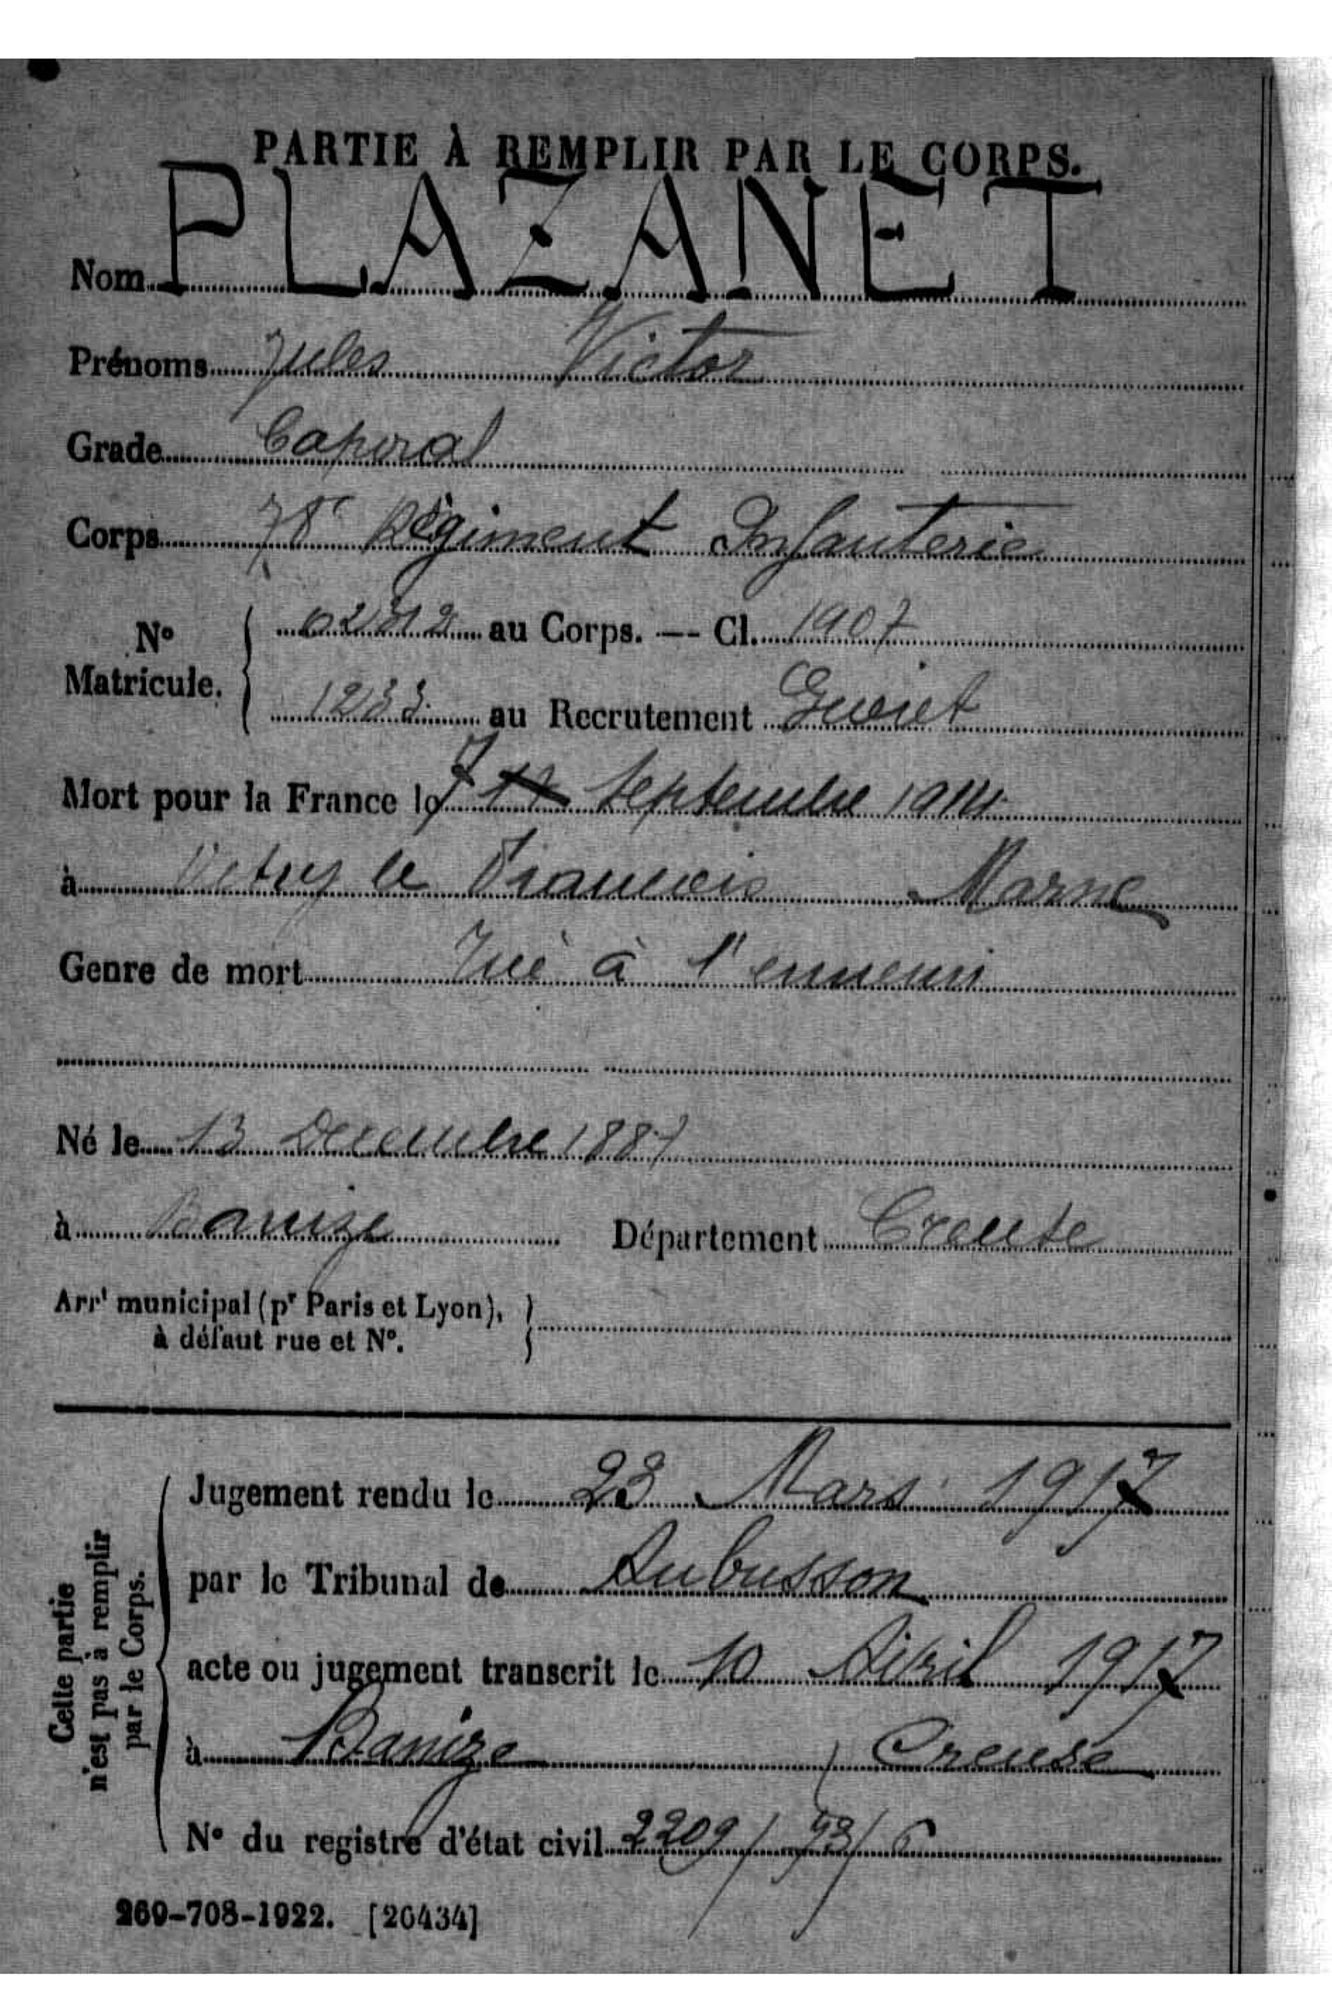 PARTIE À REMPLIR PAR LE CORPS.
Nom PLAZANET
Prénoms Jules Victor
Grade Caporal
Corps 78e Régiment Infanterie
No Matricule. au Corps. — Cl. 1907
1233 au Recrutement Guéret
Mort pour la France le 7 septembre 1914
à Vitry le François Marne
Genre de mort Tué à l'ennemi
Né le 13 Decembre 1887
à Banize Département Creuse
Arrt municipal (pr Paris et Lyon),
à défaut rue et No.
Cette partie
n'est pas à remplir
par le Corps.
Jugement rendu le 23 Mars 1917
par le Tribunal de Aubusson
acte ou jugement transcrit le 10 Avril 1917
à Banize Creuse
No du registre d'état civil 2209/93/6
269-708-1922. [26434]